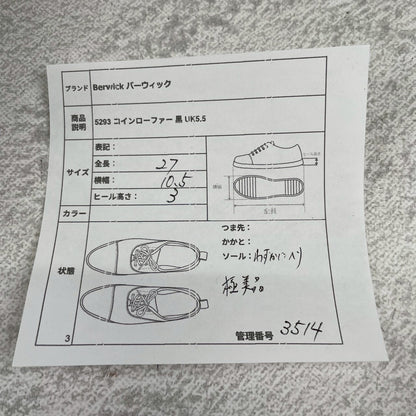 ブランド Berwick バーウィック
商品説明 5293 コインローファー 黒 UK5.5
サイズ
表記：
全長： 27
横幅： 10.5
ヒール高さ： 3
ヒール高さ
横幅
全長
カラー
状態
つま先：
かかと：
ソール：わずかにヘリ
極美品
3
管理番号 3514